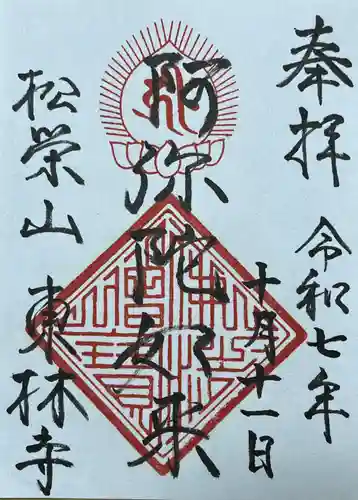 奉拝
令和七年
十月廿一日
阿弥陀如来
松栄山
東林寺